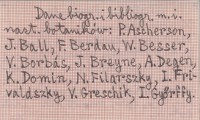 Dane biogr. i bibliogr. m. i.
nast. botaników: P. Ascherson,
J. Ball, F. Berdau, W. Besser,
V. Borbás, J. Breyne, A. Degen,
K. Domin, N. Filarszky, I. Fri-
valdszky, V. Greschik, I. Györffy.